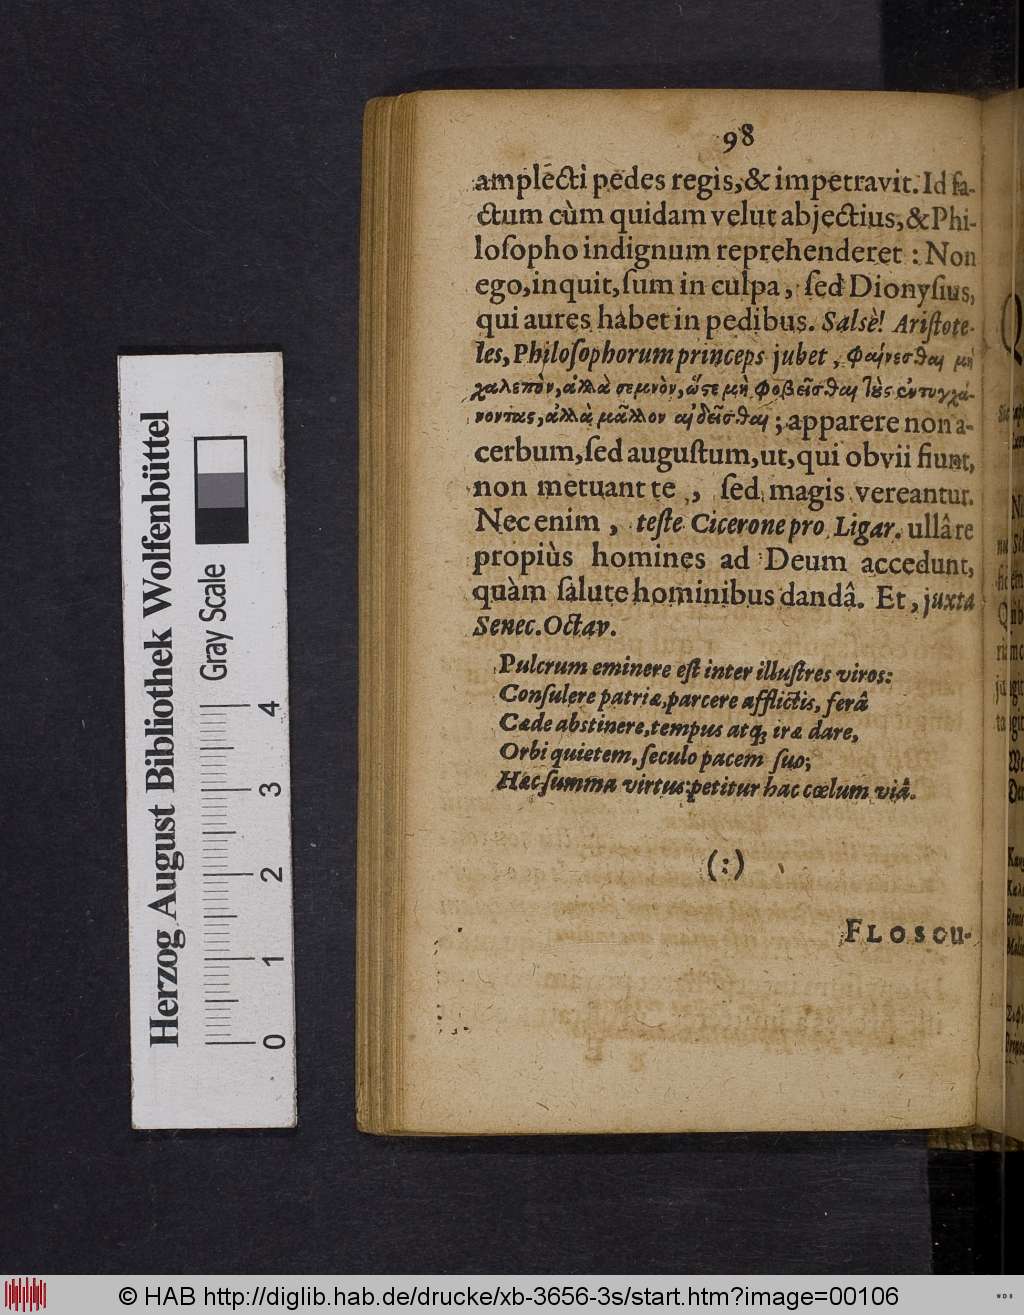 98
amplecti pedes regis, & impetravit. Id fa-
ctum cùm quidam velut abjectius, & Phi-
loſopho indignum reprehenderet : Non
ego, inquit, ſum in culpa, ſed Dionyſius,
qui aures habet in pedibus. Salsè! Ariſtote-
les, Philoſophorum princeps jubet, φαίνεσθαι μὴ
χαλεπὸν, ἀλλὰ σεμνὸν, ὥςε μὴ φοβεῖσθαι τȣ̀ς ἐντυγχά-
νοντας, ἀλλὰ μᾶλλον αἰδεῖσθαι; apparere non a-
cerbum, ſed auguſtum, ut, qui obvii fiunt,
non metuant te, ſed magis vereantur.
Nec enim, teſte Cicerone pro Ligar. ullâ re
propiùs homines ad Deum accedunt,
quàm ſalute hominibus dandâ. Et, juxta
Senec. Octav.
Pulcrum eminere eſt inter illuſtres viros:
Conſulere patriæ, parcere afflictis, ferâ
Cæde abstinere, tempus atq; iræ dare,
Orbi quietem, ſeculo pacem ſuo;
Hæc ſumma virtus: petitur hac cœlum viâ.
(:)
FLOSCU-
Herzog August Bibliothek Wolfenbüttel
Gray Scale
0 1 2 3 4
© HAB http://diglib.hab.de/drucke/xb-3656-3s/start.htm?image=00106